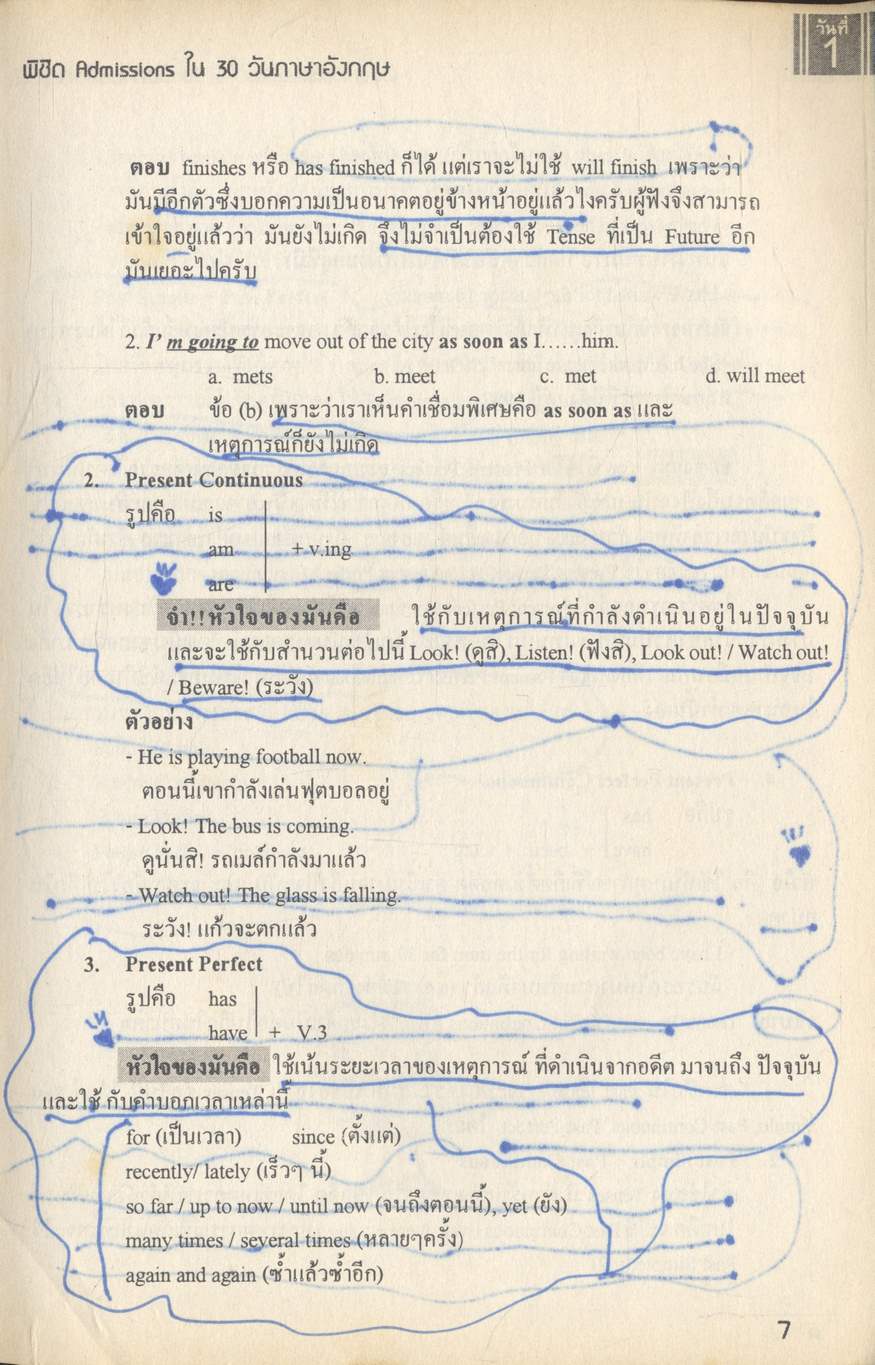 วันที่
1
พิชิต Admissions ใน 30 วันภาษาอังกฤษ
ตอบ finishes หรือ has finished ก็ได้ แต่เราจะไม่ใช้ will finish เพราะว่า
มันมีอีกตัวซึ่งบอกความเป็นอนาคตอยู่ข้างหน้าอยู่แล้วไงครับผู้ฟังจึงสามารถ
เข้าใจอยู่แล้วว่า มันยังไม่เกิด จึงไม่จำเป็นต้องใช้ Tense ที่เป็น Future อีก
มันเยอะไปครับ
2. I' m going to move out of the city as soon as I……him.
a. mets b. meet c. met d. will meet
ตอบ ข้อ (b) เพราะว่าเราเห็นคำเชื่อมพิเศษคือ as soon as และ
เหตุการณ์ก็ยังไม่เกิด
2. Present Continuous
รูปคือ is
am + v.ing
are
จำ!!หัวใจของมันคือ ใช้กับเหตุการณ์ที่กำลังดำเนินอยู่ในปัจจุบัน
และจะใช้กับสำนวนต่อไปนี้ Look! (ดูสิ), Listen! (ฟังสิ), Look out! / Watch out!
/ Beware! (ระวัง)
ตัวอย่าง
- He is playing football now.
ตอนนี้เขากำลังเล่นฟุตบอลอยู่
- Look! The bus is coming.
ดูนั่นสิ! รถเมล์กำลังมาแล้ว
- Watch out! The glass is falling.
ระวัง! แก้วจะตกแล้ว
3. Present Perfect
รูปคือ has
have + V.3
หัวใจของมันคือ ใช้เน้นระยะเวลาของเหตุการณ์ ที่ดำเนินจากอดีต มาจนถึง ปัจจุบัน
และใช้ กับคำบอกเวลาเหล่านี้
for (เป็นเวลา) since (ตั้งแต่)
recently/ lately (เร็วๆ นี้)
so far / up to now / until now (จนถึงตอนนี้), yet (ยัง)
many times / several times (หลายๆครั้ง)
again and again (ซ้ำแล้วซ้ำอีก)
7